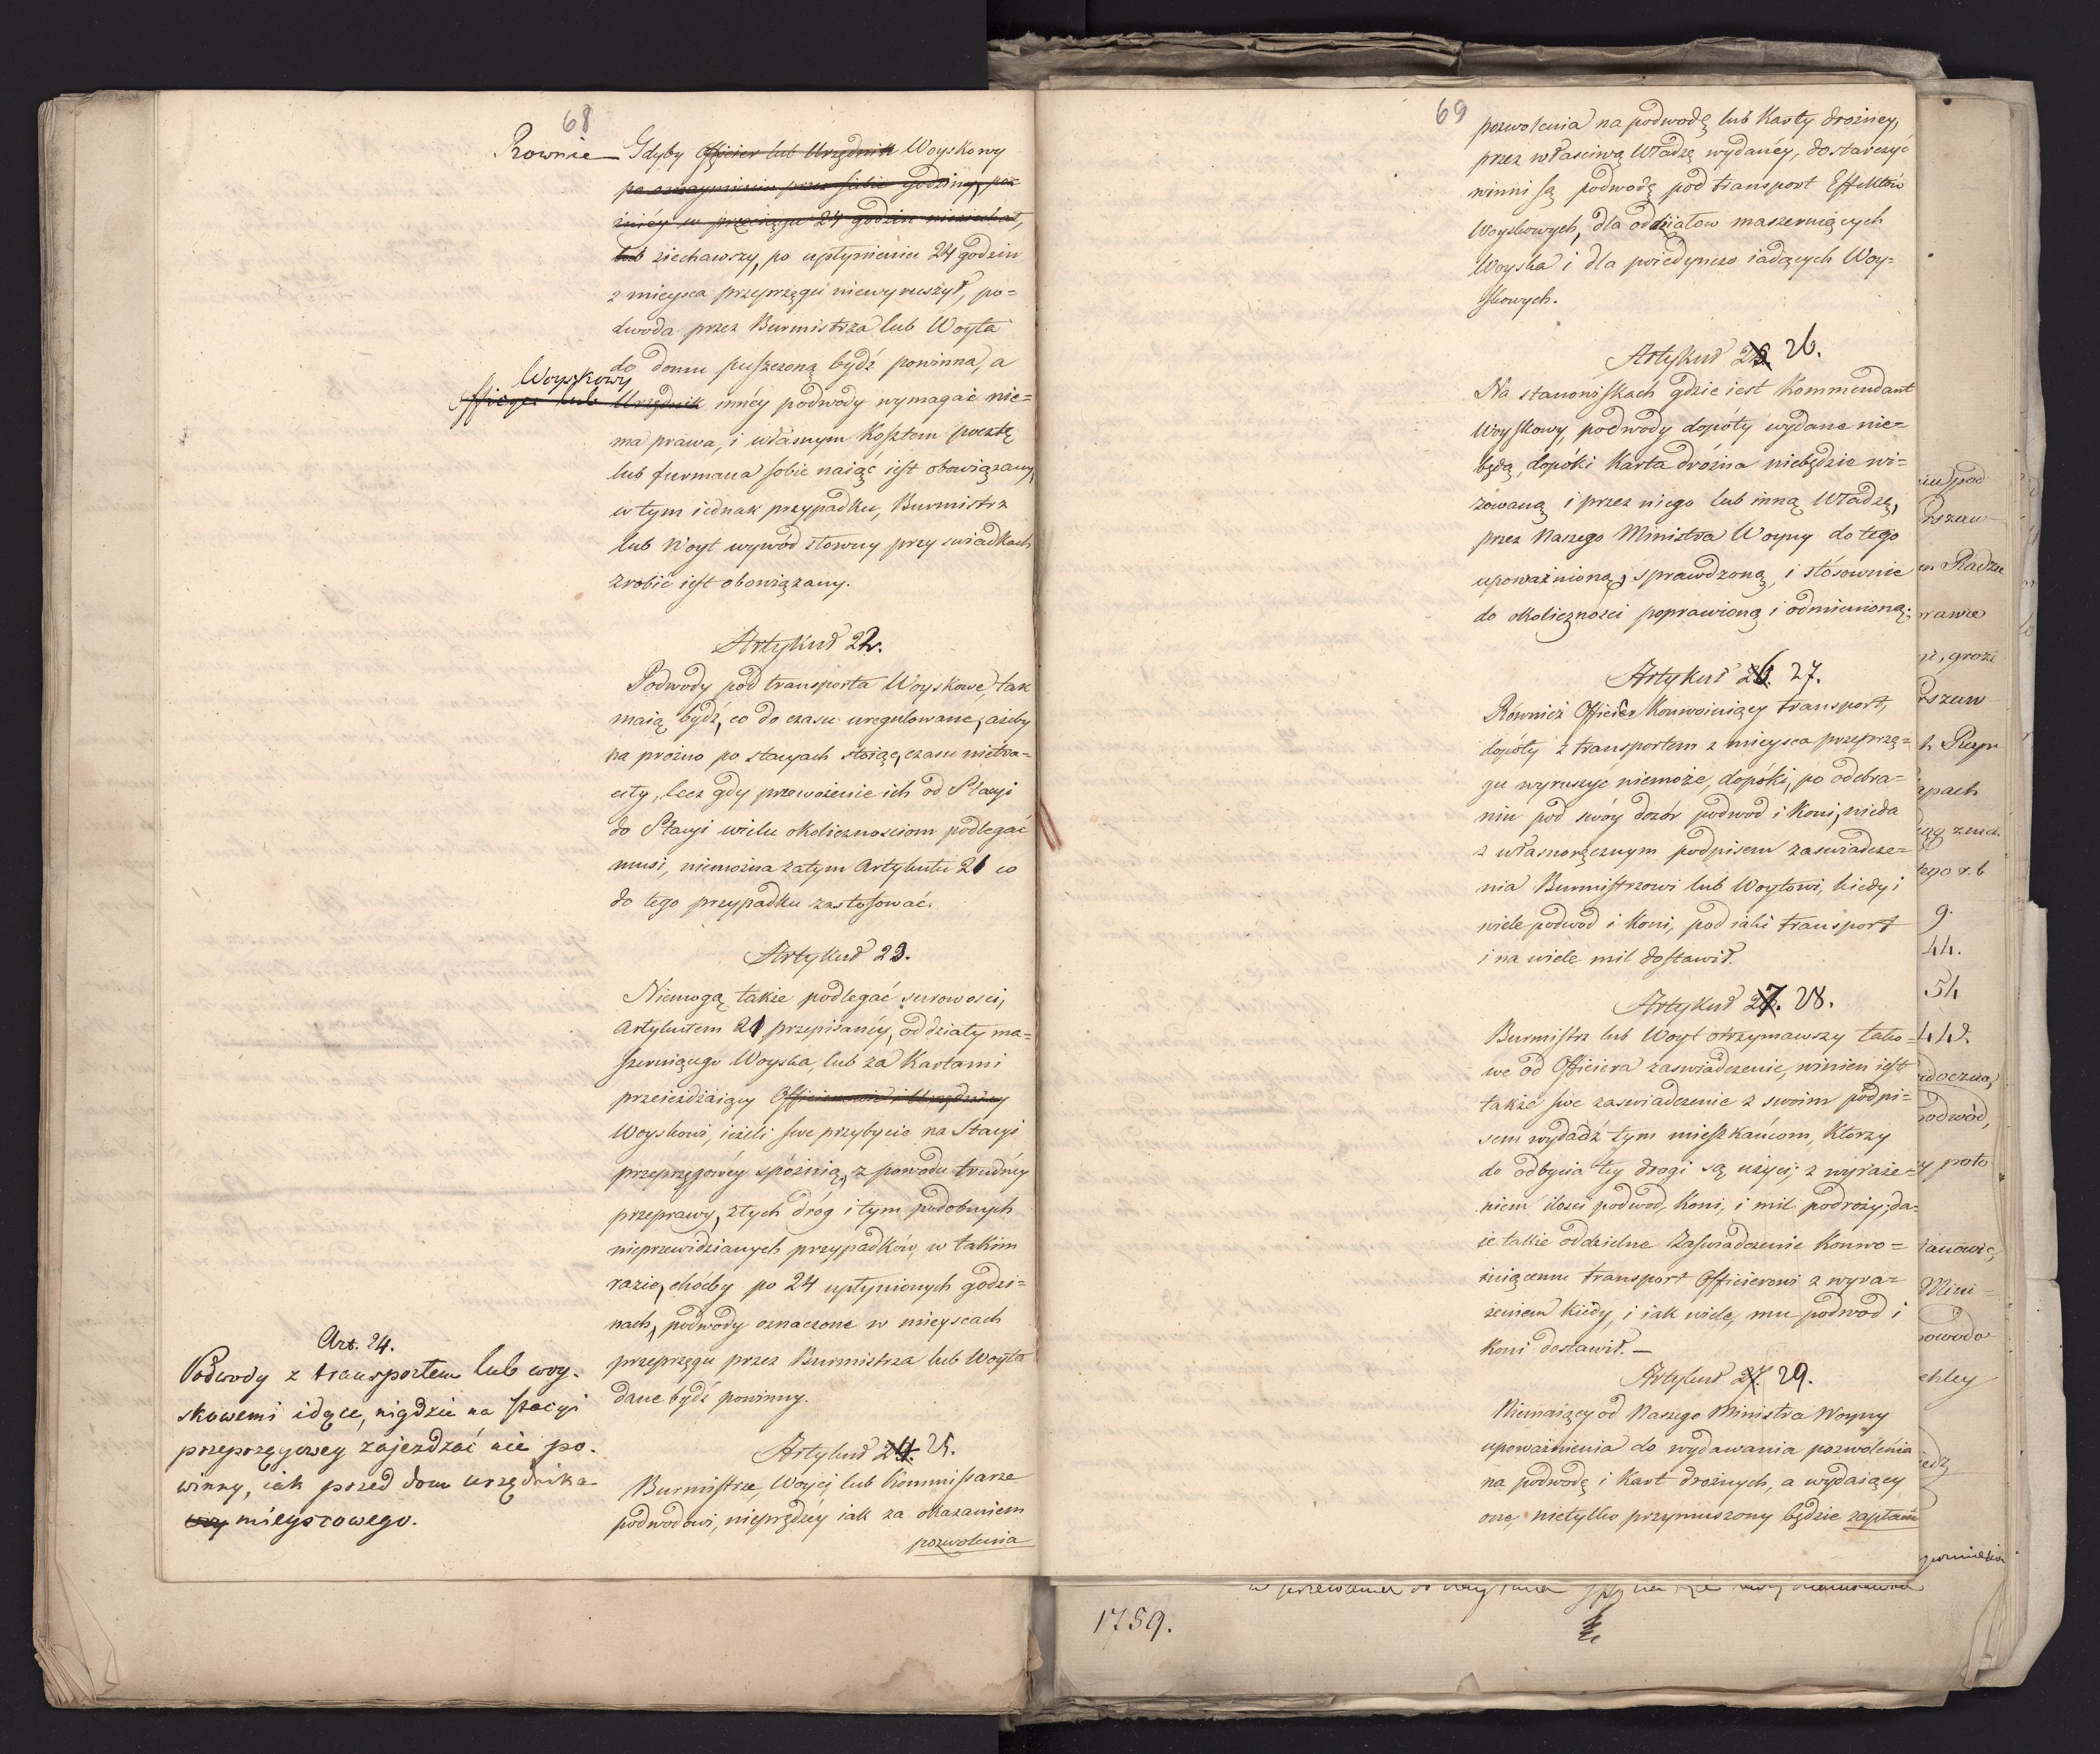 68
Rownie Gdyby Officier lub Urzędnik Woyskowy
po oznaymieniu przez siebie godziny, poź
źniéy w przeciągu 24 godzin niezjechał,
lub ziechawszy, po upłynieniu 24 godzin
z mieysca przeprzęgu niewyruszył, po=
dwoda przez Burmistrza lub Woyta
do domu puszczoną bydź powinna, a
Woyskowy
Officyer lub Urzędnik innéy podwody wymagać nie=
ma prawa, i własnym kosztem pocztę
lub furmana sobie naiąć iest obowiązany,
w tym iednak przypadku, Burmistrz
lub Woyt wywód słowny przy swiadkach
zrobić iest obowiązany.
Artykuł 22.
Podwody pod transporta Woyskowe, tak
maią bydź, co do czasu uregulowane, ażeby
na prózno po stacyach stoiąc, czasu nietra=
ciły, lecz gdy przewożenie ich od Stacyi
do Stacyi wielu okolicznosciom podlegać
musi, niemożna zatym Artykułu 21 co
do tego przypadku zastosować.
Artykuł 23.
Niemogą także podlegać surowosci,
Artykułem 21 przepisanéy, oddziały ma=
szeruiącego Woyska, lub za Kartami
przeieżdżaiący Officierowie i Urzędnicy
Woyskowi, ieżeli swe przybycie na Stacyi
przeprzęgowéy spóźnią, z powodu trudnéy
przeprawy, złych dróg i tym podobnych
nieprzewidzianych przypadków, w takim
razie, choćby po 24 upłynionych godzi=
nach, podwody oznaczone w mieyscach
przeprzęgu przez Burmistrza lub Woyta
dane bydź powinny.
Art. 24.
Podwody z transportem lub woy-
skowemi idące, nigdzie na stacyi
przeprzęgowey zajezdzać nie po-
winny, iak przed dom urzędnika
wey mieyscowego.
Artykuł 24. 25.
Burmistrze, Woyci lub Kommissarze
podwodowi, nieprędzéy iak za okazaniem
pozwolenia
69
pozwolenia na podwodę lub Karty drożney,
przez własciwą Władzę wydanéy, dostarczyć
winni są podwodę pod transport Effektów
Woyskowych, dla oddziałow maszeruiących
Woyska i dla poiedynczo iadących Woy=
skowych.
Artykuł 25 26.
Na stanowiskach gdzie iest Kommendant
Woyskowy, podwody dopóty wydane nie=
będą, dopóki Karta dróżna niebędzie wi=
zowaną i przez niego lub inną Władzę,
przez Naszego Ministra Woyny do tego
upoważnioną, sprawdzoną, i stósownie
do okoliczności poprawioną i odmienioną.
Artykuł 26. 27.
Również Officier Konwoiuiący transport,
dopóty z transportem z mieysca przeprzę=
gu wyruszyć niemoże, dopóki, po odebra=
niu pod swóy dozór podwod i Koni, nieda
z własnoręcznym podpisem zaswiadcze=
nia Burmistrzowi lub Woytowi, kiedy i
wiele podwod i Koni, pod iaki transport
i na wiele mil dostawił.
Artykuł 27. 28.
Burmistrz lub Woyt otrzymawszy tako=
we od Officiera zaswiadczenie, winien iest
także swe zaswiadczenie z swoim podpi=
sem wydadź tym mieszkańcom, Ktorzy
do odbycia tey drogi są użyci; z wyraże=
niem ilosci podwod, Koni, i mil podroży; da=
ie także oddzielne Zaswiadczenie Konwo=
iuiącemu transport Officierowi z wyra=
żeniem kiedy, i iak wiele, mu podwod i
Koni dostawił. —
Artykuł 27. 29.
Niemaiący od Naszego Ministra Woyny
upoważnienia do wydawania pozwólénia
na podwodę i Kart drożnych, a wydaiący
one, nietylko przymuszony będzie zapłacić
1759.